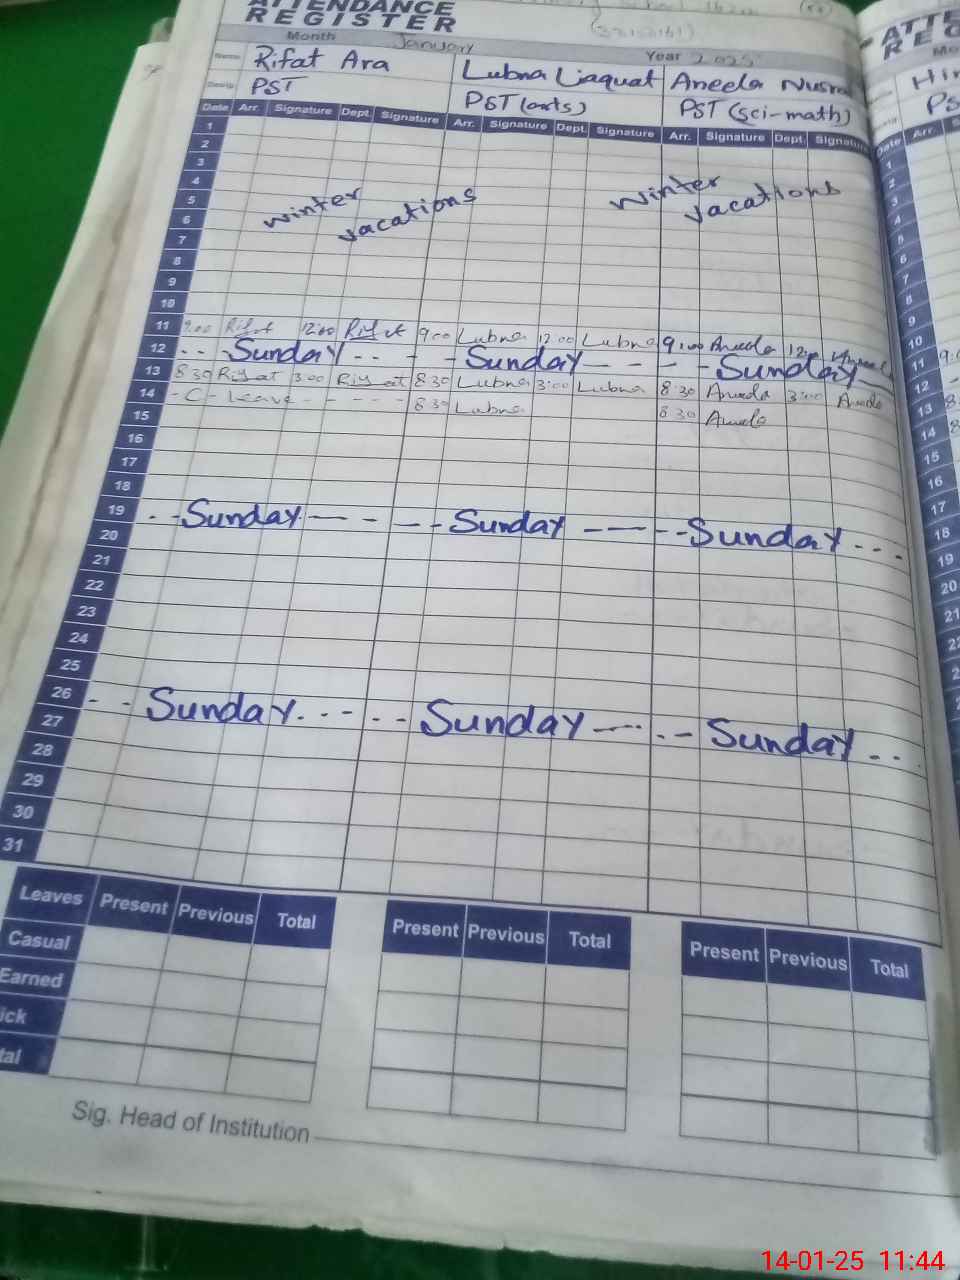 ATTENDANCE
REGISTER
Month January Year 2025
Name Rifat Ara Lubna Liaquat Aneela Nusra
Desig: PST PST (arts) PST (sci-math)
Date Arr. Signature Dept. Signature Arr. Signature Dept. Signature Arr. Signature Dept. Signature
1
2
3
4
5 winter vacations winter vacations
6
7
8
9
10
11 9:00 Rifat 12:00 Rifat 9:00 Lubna 12:00 Lubna 9:00 Aneela 12:00
12 Sunday Sunday Sunday
13 8:30 Rifat 3:00 Rifat 8:30 Lubna 3:00 Lubna 8:30 Aneela 3:00 Aneela
14 - C - Leave - - - - - 8:30 Lubna 8:30 Aneela
15
16
17
18
19 Sunday Sunday Sunday
20
21
22
23
24
25
26 Sunday Sunday Sunday
27
28
29
30
31
Leaves Present Previous Total Present Previous Total Present Previous Total
Casual
Earned
ick
tal
Sig. Head of Institution
ATTE
REG
Mo
Hir
PS
Date Arr. S
1
2
3
4
5
6
7
8
9
10
11 9:0
12
13 8:
14 8:
15
16
17
18
19
20
21
14-01-25 11:44